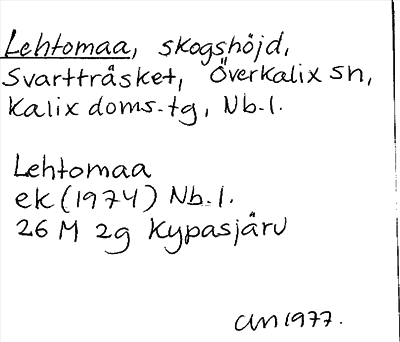 Lehtomaa, skogshöjd,
Svartträsket, Överkalix sn,
Kalix doms.tg, Nb.l.
Lehtomaa
ek (1974) Nb.l.
26 M 2g Kypasjärv
1977.